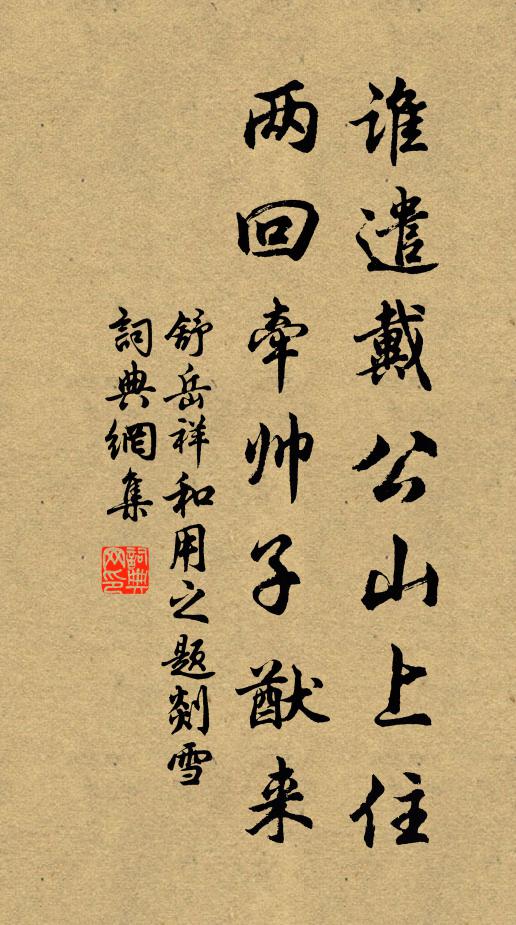 谁遣戴公山上住
两回牵帅子猷来
舒岳祥和用之题剡雪
詞典網集
詞典网印